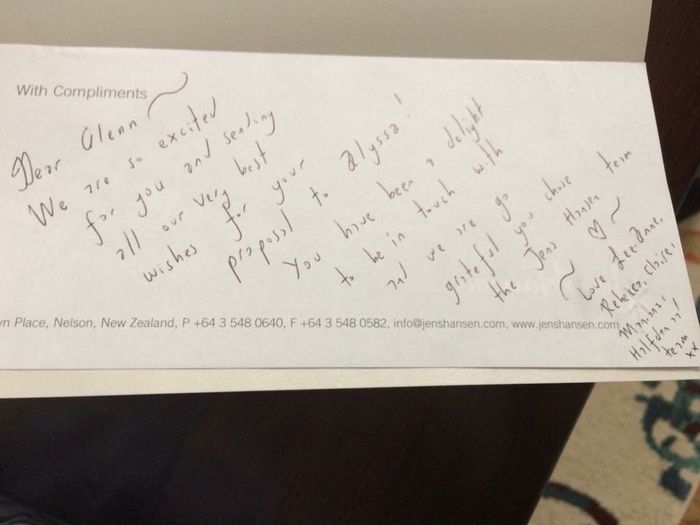 With Compliments
Dear Glenn
We are so excited
for you and sending
all our very best
wishes for your
proposal to Alyssa!
You have been a delight
to be in touch with
and we are so
grateful you chose
the Jens Hansen team
Love Lee-Anne,
Rebecca, Chloe,
Halfdan
team xx
n Place, Nelson, New Zealand, P +64 3 548 0640, F +64 3 548 0582, info@jenshansen.com, www.jenshansen.com